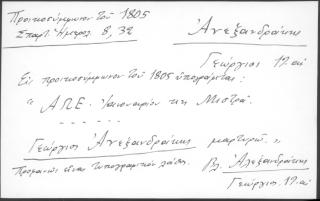 Προικοσύμφωνον τοῦ 1805
Σπαρτ. Ἡμερολ. 8, 32
Ἀνεξανδράκης
Γεώργιος 19. αἰ
Εἰς προικοσύμφωνον τοῦ 1805 ὑπογράφεται:
" ΑΩΕ. Ἰαννουαρίου της Μιστρᾶ.
Γεώργιος Ἀνεξανδράκης μαρτυρῶ".
Προφανῶς εἶναι τυπογραφικόν λάθος. Βλ. Ἀλεξανδράκης
Γεώργιος. 19. αἰ